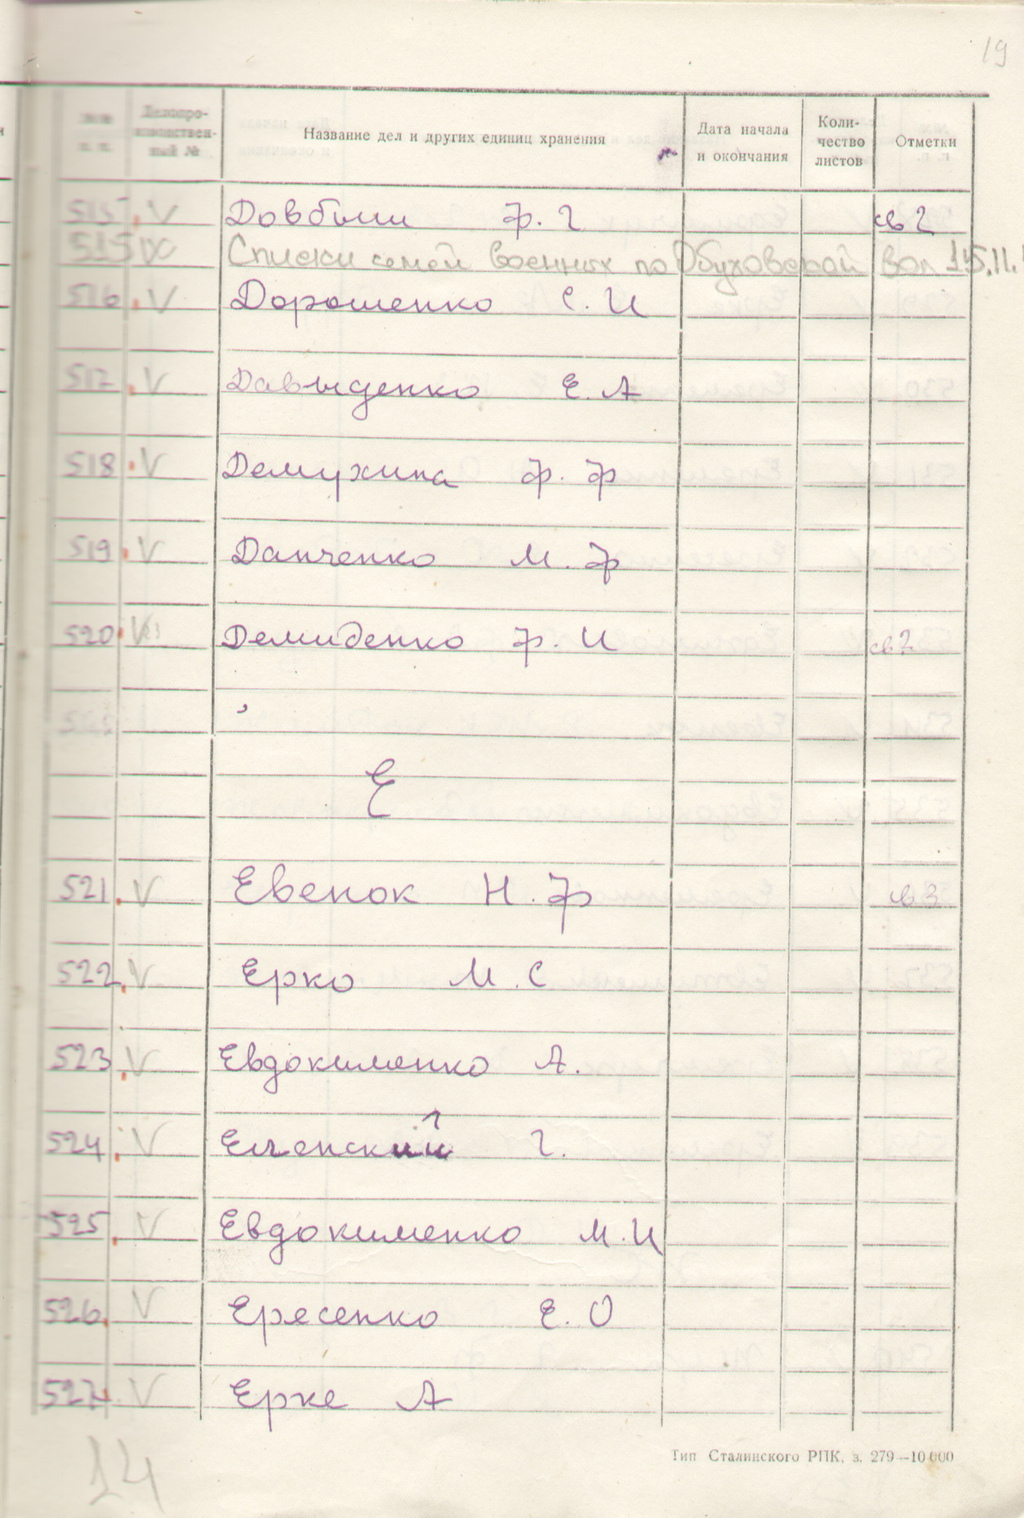 19
№№ п. п. Делопро-изводствен-ный № Название дел и других единиц хранения Дата начала и окончания Коли-чество листов Отметки
515 V Довбыш Ф. Г св 2
515 Списки семей военных по Обуховской вол 15.11.
516 V Дорошенко С. И
517 V Давыденко Е. А
518 V Демухина Ф. Ф
519 V Данченко М. Ф
520 V Демиденко Ф. И св 2
Е
521 V Евенок Н. Ф св 3
522 V Ерко М. С
523 V Евдокименко А.
524 V Еленский Г.
525 V Евдокименко М. И
526 V Ересенко Е. О
527 V Ерке А
Тип Сталинского РПК, з. 279—10 000
14